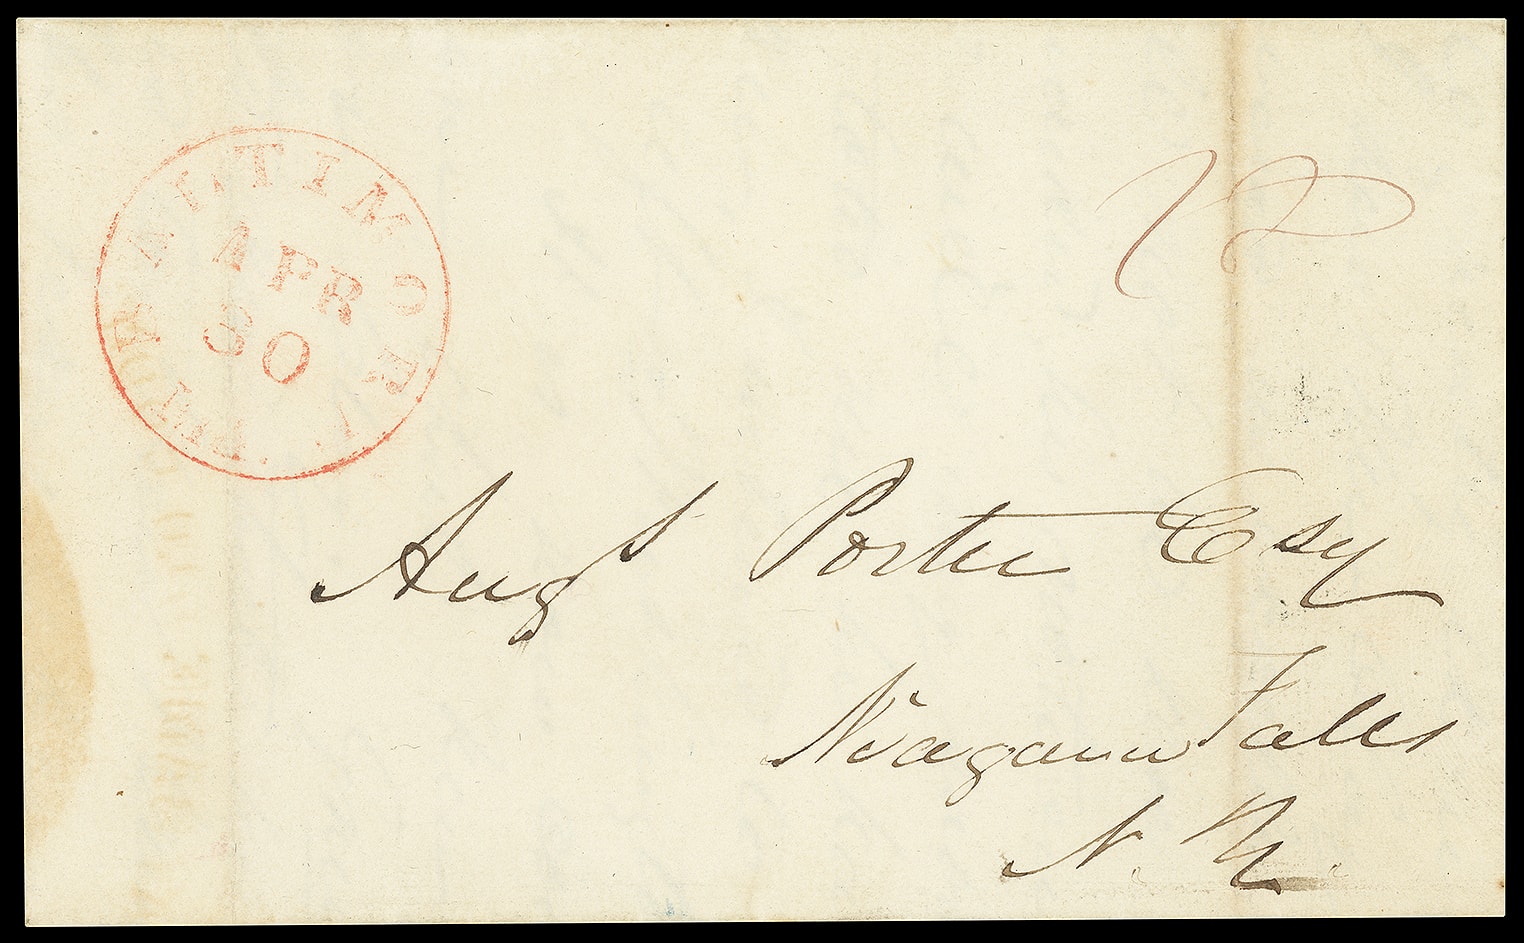 BALTIMORE Md.
APR
30
Augs Porter Esq
Niagara Falls
N. Y.